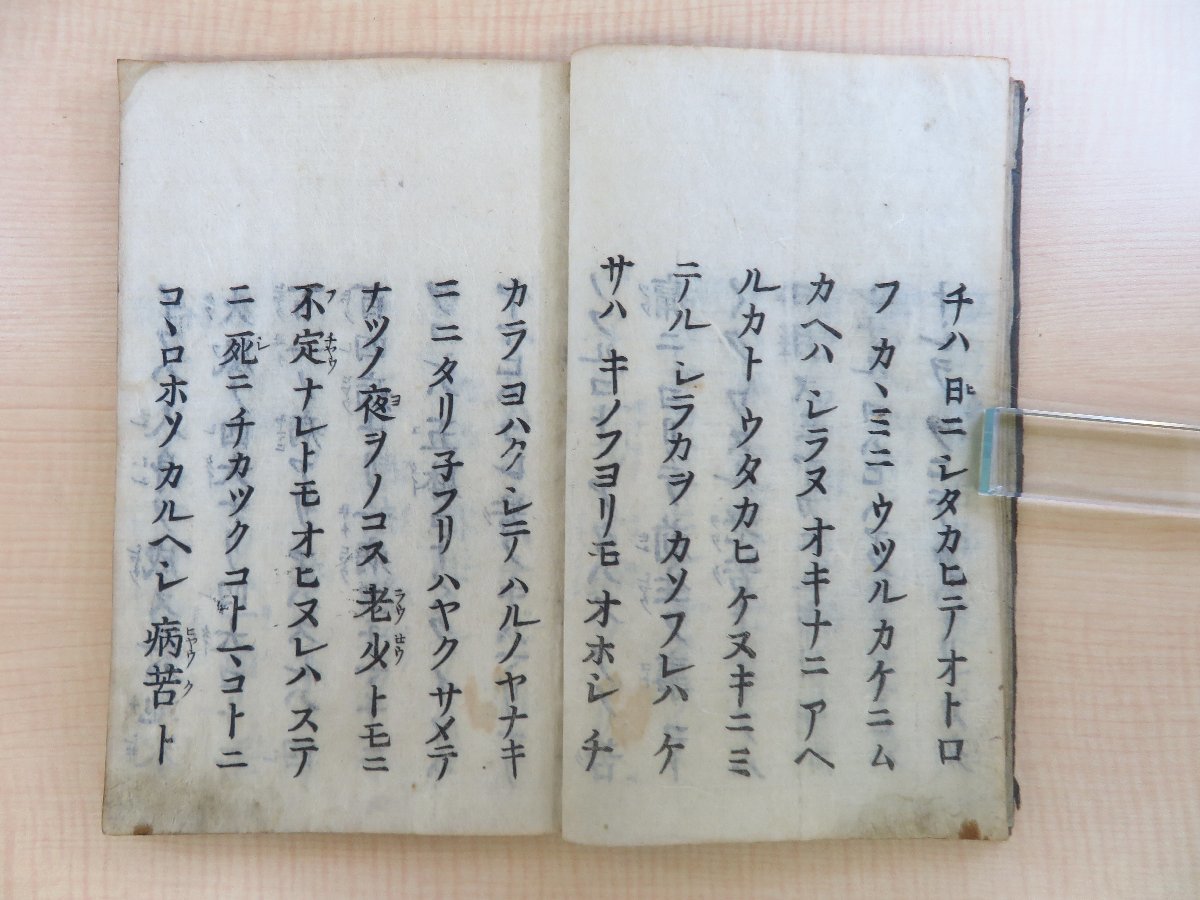 チハ日ニシタカヒテオトロ
フカヽミニウツルカケニム
カヘハシラヌオキナニアヘ
ルカトウタカヒケヌキニミ
テルシラカヲカソフレハケ
サハキノフヨリモオホシチ
カラヨハクシテハルノヤナキ
ニニタリ子フリハヤクサメテ
ナツノ夜ヲノコス老少トモニ
不定ナレトモオヒヌレハステ
ニ死ニチカツクコト一ヽコトニ
コヽロホソカルヘシ病苦ト